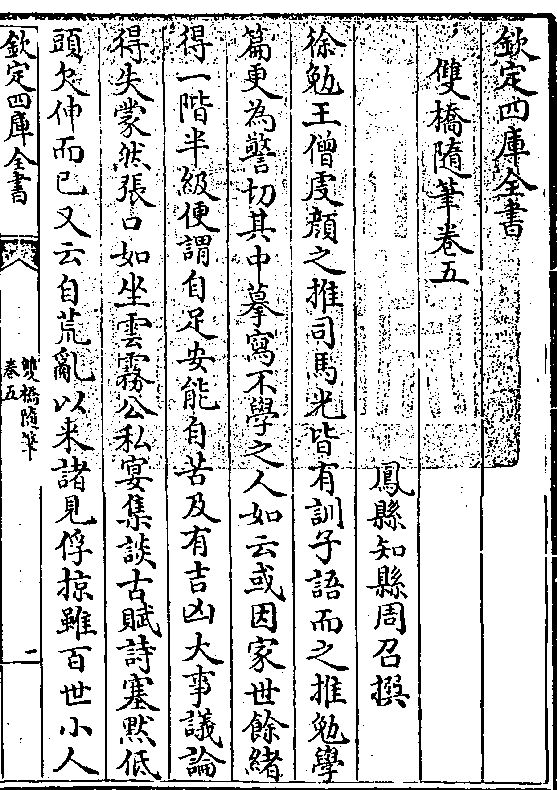 欽定四庫全書
雙橋隨筆卷五
鳳縣知縣周召撰
徐勉王僧虔顔之推司馬光皆有訓子語而之推勉學
篇更為警切其中摹寫不學之人如云或因家世餘緒
得一階半級便謂自足安能自苦及有吉凶大事議論
得失蒙然張口如坐雲霧公私宴集談古賦詩塞黙低
頭欠伸而已又云自荒亂以来諸見俘掠雖百世小人
欽定四庫全書
雙橋隨筆
卷五
一